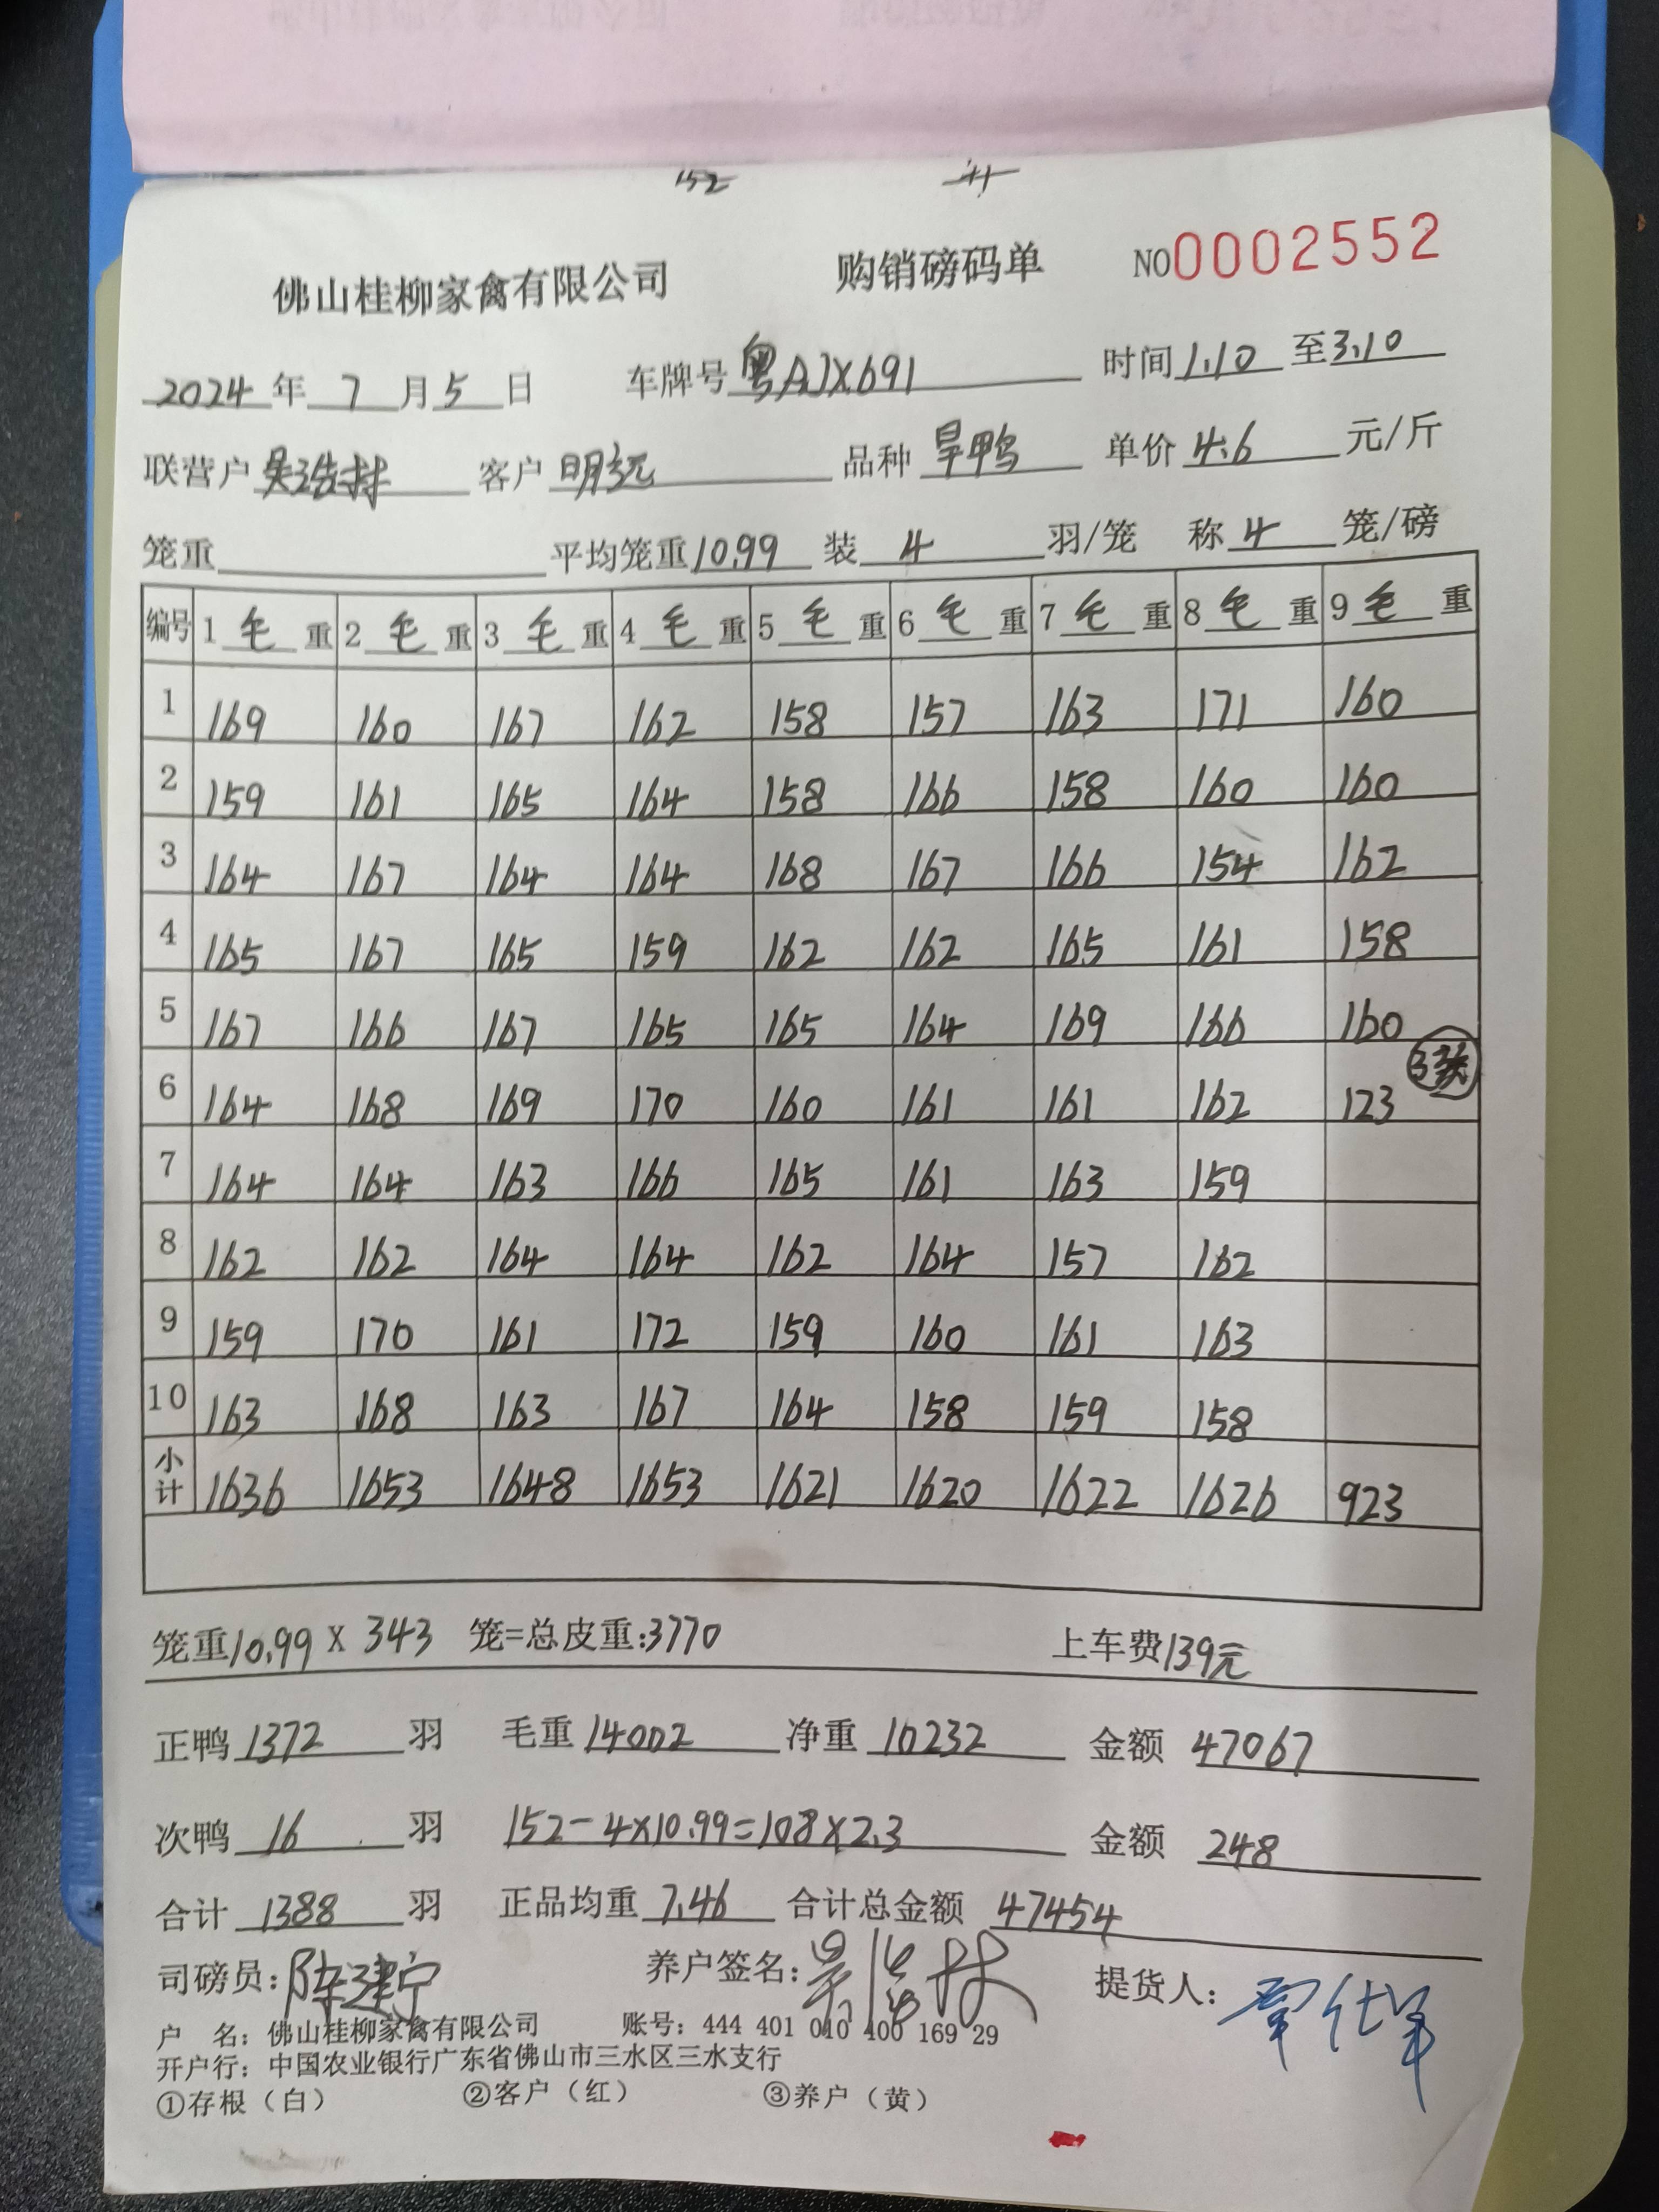 152 才
佛山桂柳家禽有限公司 购销磅码单 NO0002552
2024年7月5日 车牌号粤AJX691 时间1.10至3.10
联营户吴浩林 客户明记 品种旱鸭 单价4.6元/斤
笼重 平均笼重10.99 装4羽/笼 称4笼/磅
编号 1毛重 2毛重 3毛重 4毛重 5毛重 6毛重 7毛重 8毛重 9毛重
1 169 160 167 162 158 157 163 171 160
2 159 161 165 164 158 166 158 160 160
3 164 167 164 164 168 167 166 154 162
4 165 167 165 159 162 162 165 161 158
5 167 166 167 165 165 164 169 166 160
6 164 168 169 170 160 161 161 162 123 3笼
7 164 164 163 166 165 161 163 159
8 162 162 164 164 162 164 157 162
9 159 170 161 172 159 160 161 163
10 163 168 163 167 164 158 159 158
小计 1636 1653 1648 1653 1621 1620 1622 1626 923
笼重10.99 X 343 笼=总皮重:3770 上车费139元
正鸭1372羽 毛重14002 净重10232 金额47067
次鸭16羽 152-4X10.99=108X2.3 金额248
合计1388羽 正品均重7.46 合计总金额47454
司磅员:陈建宁 养户签名:吴浩林 提货人:
户 名:佛山桂柳家禽有限公司 账号:444 401 010 400 169 29
开户行:中国农业银行广东省佛山市三水区三水支行
①存根(白) ②客户(红) ③养户(黄)